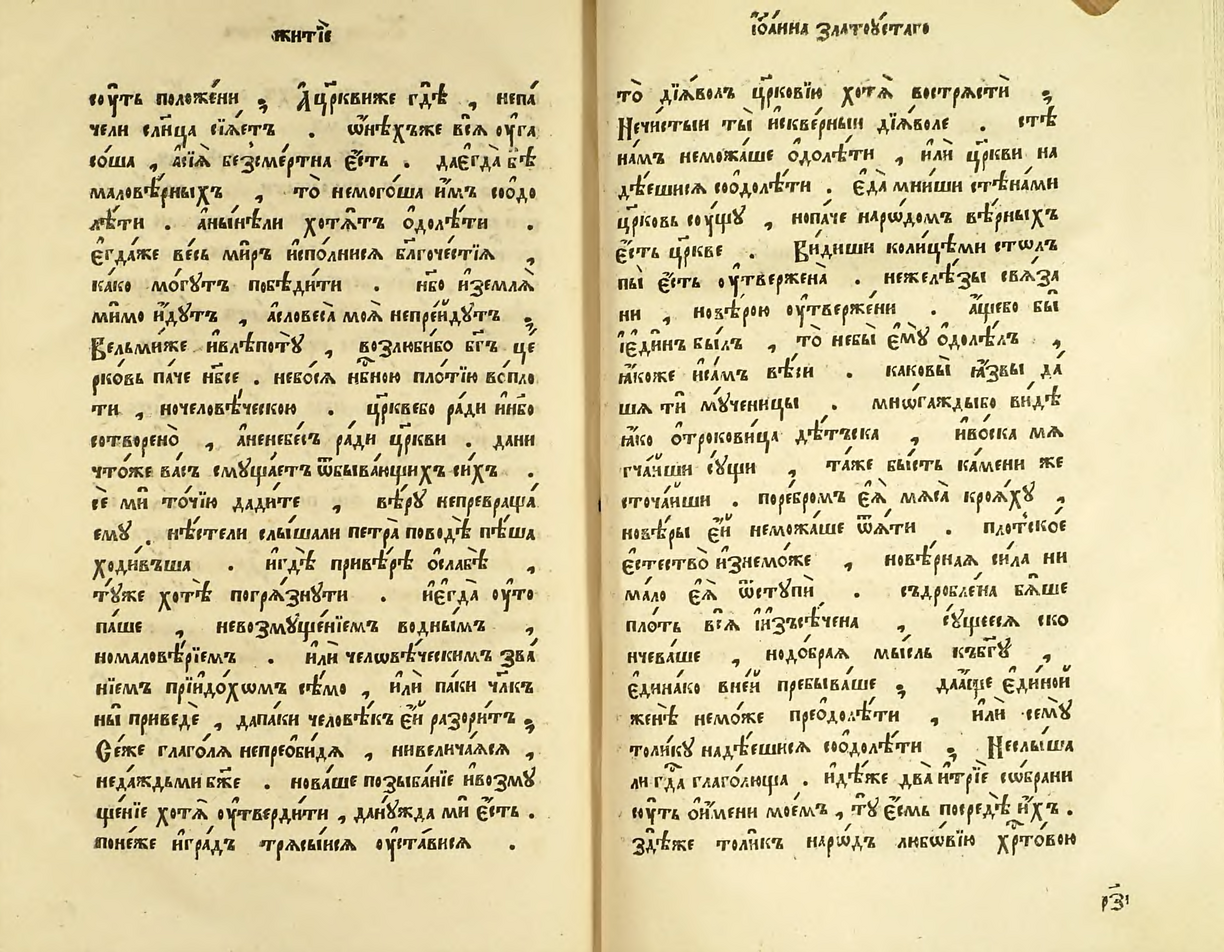 житїѐ
сꙋ́ть положе́ни ; А҆ цр҃квиже гдѣ̀ , непа́
чели сл҃нца сїѧ́етъ . ѡ҆нѣ́хъже всѧ̀ оу҆га
со́ша , а҆сїѧ̀ безсме́ртна є҆́сть . даєгда̀ бѣ̀
маловѣ́рныхъ , то̀ немого́ша и҆̀мъ соо̑до
лѣ́ти . а҆ны́нѣли хотѧ́тъ о҆долѣ́ти .
є҆гда́же ве́сь ми́ръ и҆спо́лнисѧ бл҃гоче́стїѧ ,
ка́ко мо́гꙋтъ побѣди́ти . нб҃о и҆землѧ̀
ми́мо и҆́дꙋтъ , а҆словеса̀ моѧ̀ непре́йдꙋтъ ;
Вельми́же и҆влѣ́потꙋ , возлюби́бо бг҃ъ це́
рковь па́че нб҃се . небосѧ̀ нбⷭ҇ною пло́тїю воспло
ти̑ , ночеловѣ́ческою . цр҃квебо ра́ди и҆нб҃о
сотворено̀ , а҆ненебе́съ ра́ди цр҃кви . дани
что́же ва́съ смꙋща́етъ ѿбыва́ющихъ си́хъ .
се́ ми то́чїю дади́те , вѣ́рꙋ непревраща́
емꙋ . нѣ́стели слы́шали петра̀ поводѣ̀ пѣ́ша
ходи́въша . и҆гдѣ̀ привѣ́рѣ о҆слабѣ̀ ,
тꙋ́же хотѣ̀ погрѧ́знꙋти . и҆єгда̀ оу҆то
па́ше , невозмꙋще́нїемъ во́днымъ ,
номаловѣ́рїемъ . и҆лѝ человѣ́ческимъ зва́
нїемъ прїидо́хѡмъ сѣ́мо , и҆лѝ па́ки чл҃къ
ны̀ приведѐ , дапа́ки человѣ́къ є҆й разори́тъ ;
Се́же глаго́лѧ непреоби́дѧ , нивелича́ѧсѧ ,
неда́ждьми бж҃е . нова́ше позыба́нїе и҆возмꙋ
ще́нїе хотѧ̀ оу҆тверди́ти , данꙋ́жда ми̑ є҆́сть .
поне́же и҆гра́дъ трѧсы́йсѧ оу҆ста́висѧ .
і҆ѡа́нна златоꙋ́стаго
то̀ дїѧ́волъ цр҃ковїю хотѧ̀ востры́сти ;
Нечи́стыи ты̀ и҆скве́рныи дїѧ́воле . стѣ̀
на́мъ неможа́ше о҆долѣ́ти , и҆лѝ цр҃кви на
дѣ́ешисѧ соо҆долѣ́ти . є҆да̀ мни́ши стѣна́ми
цр҃ковь сꙋ́щꙋ , нопа́че наро́дѡмъ вѣ́рныхъ
є҆́сть цр҃кве . Ви́диши коли́цѣми сто́лъ
пы̀ є҆́сть оу҆твержена̀ . нежелѣ́зы свѧ́за
ни , новѣ́рою оу҆твержени . а҆́щебо бы̀
і҆є҆ди́нъ бы́лъ , то̀ небы̀ є҆мꙋ̀ о҆долѣ́лъ ,
ꙗ҆́коже и҆са́мъ вѣ́си . каковы̀ ꙗ҆́звы да́
шѧ ти̑ мꙋ́ченицы . мно́гаждыбо ви́дѣ
ꙗ҆́ко о҆трокови́ца дѣ́тъска , и҆во́ска мѧ́
гча́йши сꙋ́щи , та́же бы́сть ка́мени же
сточа́йши . поре́бромъ є҆ѧ̀ мѧ́са кроѧ́хꙋ ,
новѣ́ры є҆й неможа́ше ѿѧ́ти . плотско́е
є҆стество̀ и҆знемо́же , новѣ́рнаѧ си́ла ни
ма́ло є҆ѧ̀ ѿстꙋпѝ . съдробле́на бѧ́ше
пло́ть всѧ̀ и҆и҆зъсѣ́чена , сꙋ́щеесѧ ско
нчева́ше , нодо́браѧ мы́сль къбг҃ꙋ ,
є҆дина́ко вне́й пребыва́ше ; даа́ще є҆ди́ной
женѣ̀ немо́же преѡдолѣ́ти , и҆лѝ семꙋ̀
толи́кꙋ надѣ́ешисѧ соо҆долѣ́ти ; Неслы́ша
ли гдⷭ҇а глаго́люща . и҆дѣ́же два̀ и҆трїѐ со́брани
сꙋ́ть о҆и҆́мени мое́мъ , тꙋ̀ є҆́смь посредѣ̀ и҆́хъ .
здѣ́же толи́къ наро́дъ любо́вїю хрⷭ҇то́вою
рз҃і